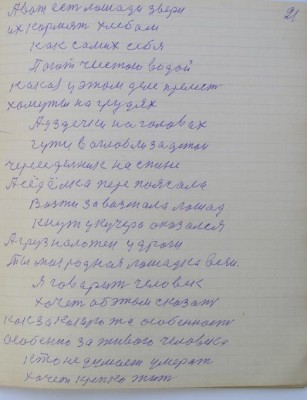 21
А вот ест лошади звери
их кормят хлебом
как самих себя
Поют чистою водой
какая у этом деле прелест
хомуты на грудях
А уздечки на головах
гужи в оглобли
череседелник на спине
А седёлка пере поясала
Вожжи завозжала лошад
кнут у кучера оказался
А груз наложен у дроги
Ты милая родная лошадка вези
Я говорит человек
хочет об этом сказат
как за каку то же особенност
особенно за живого человека
кто не думает умерат
хочет крепко жит